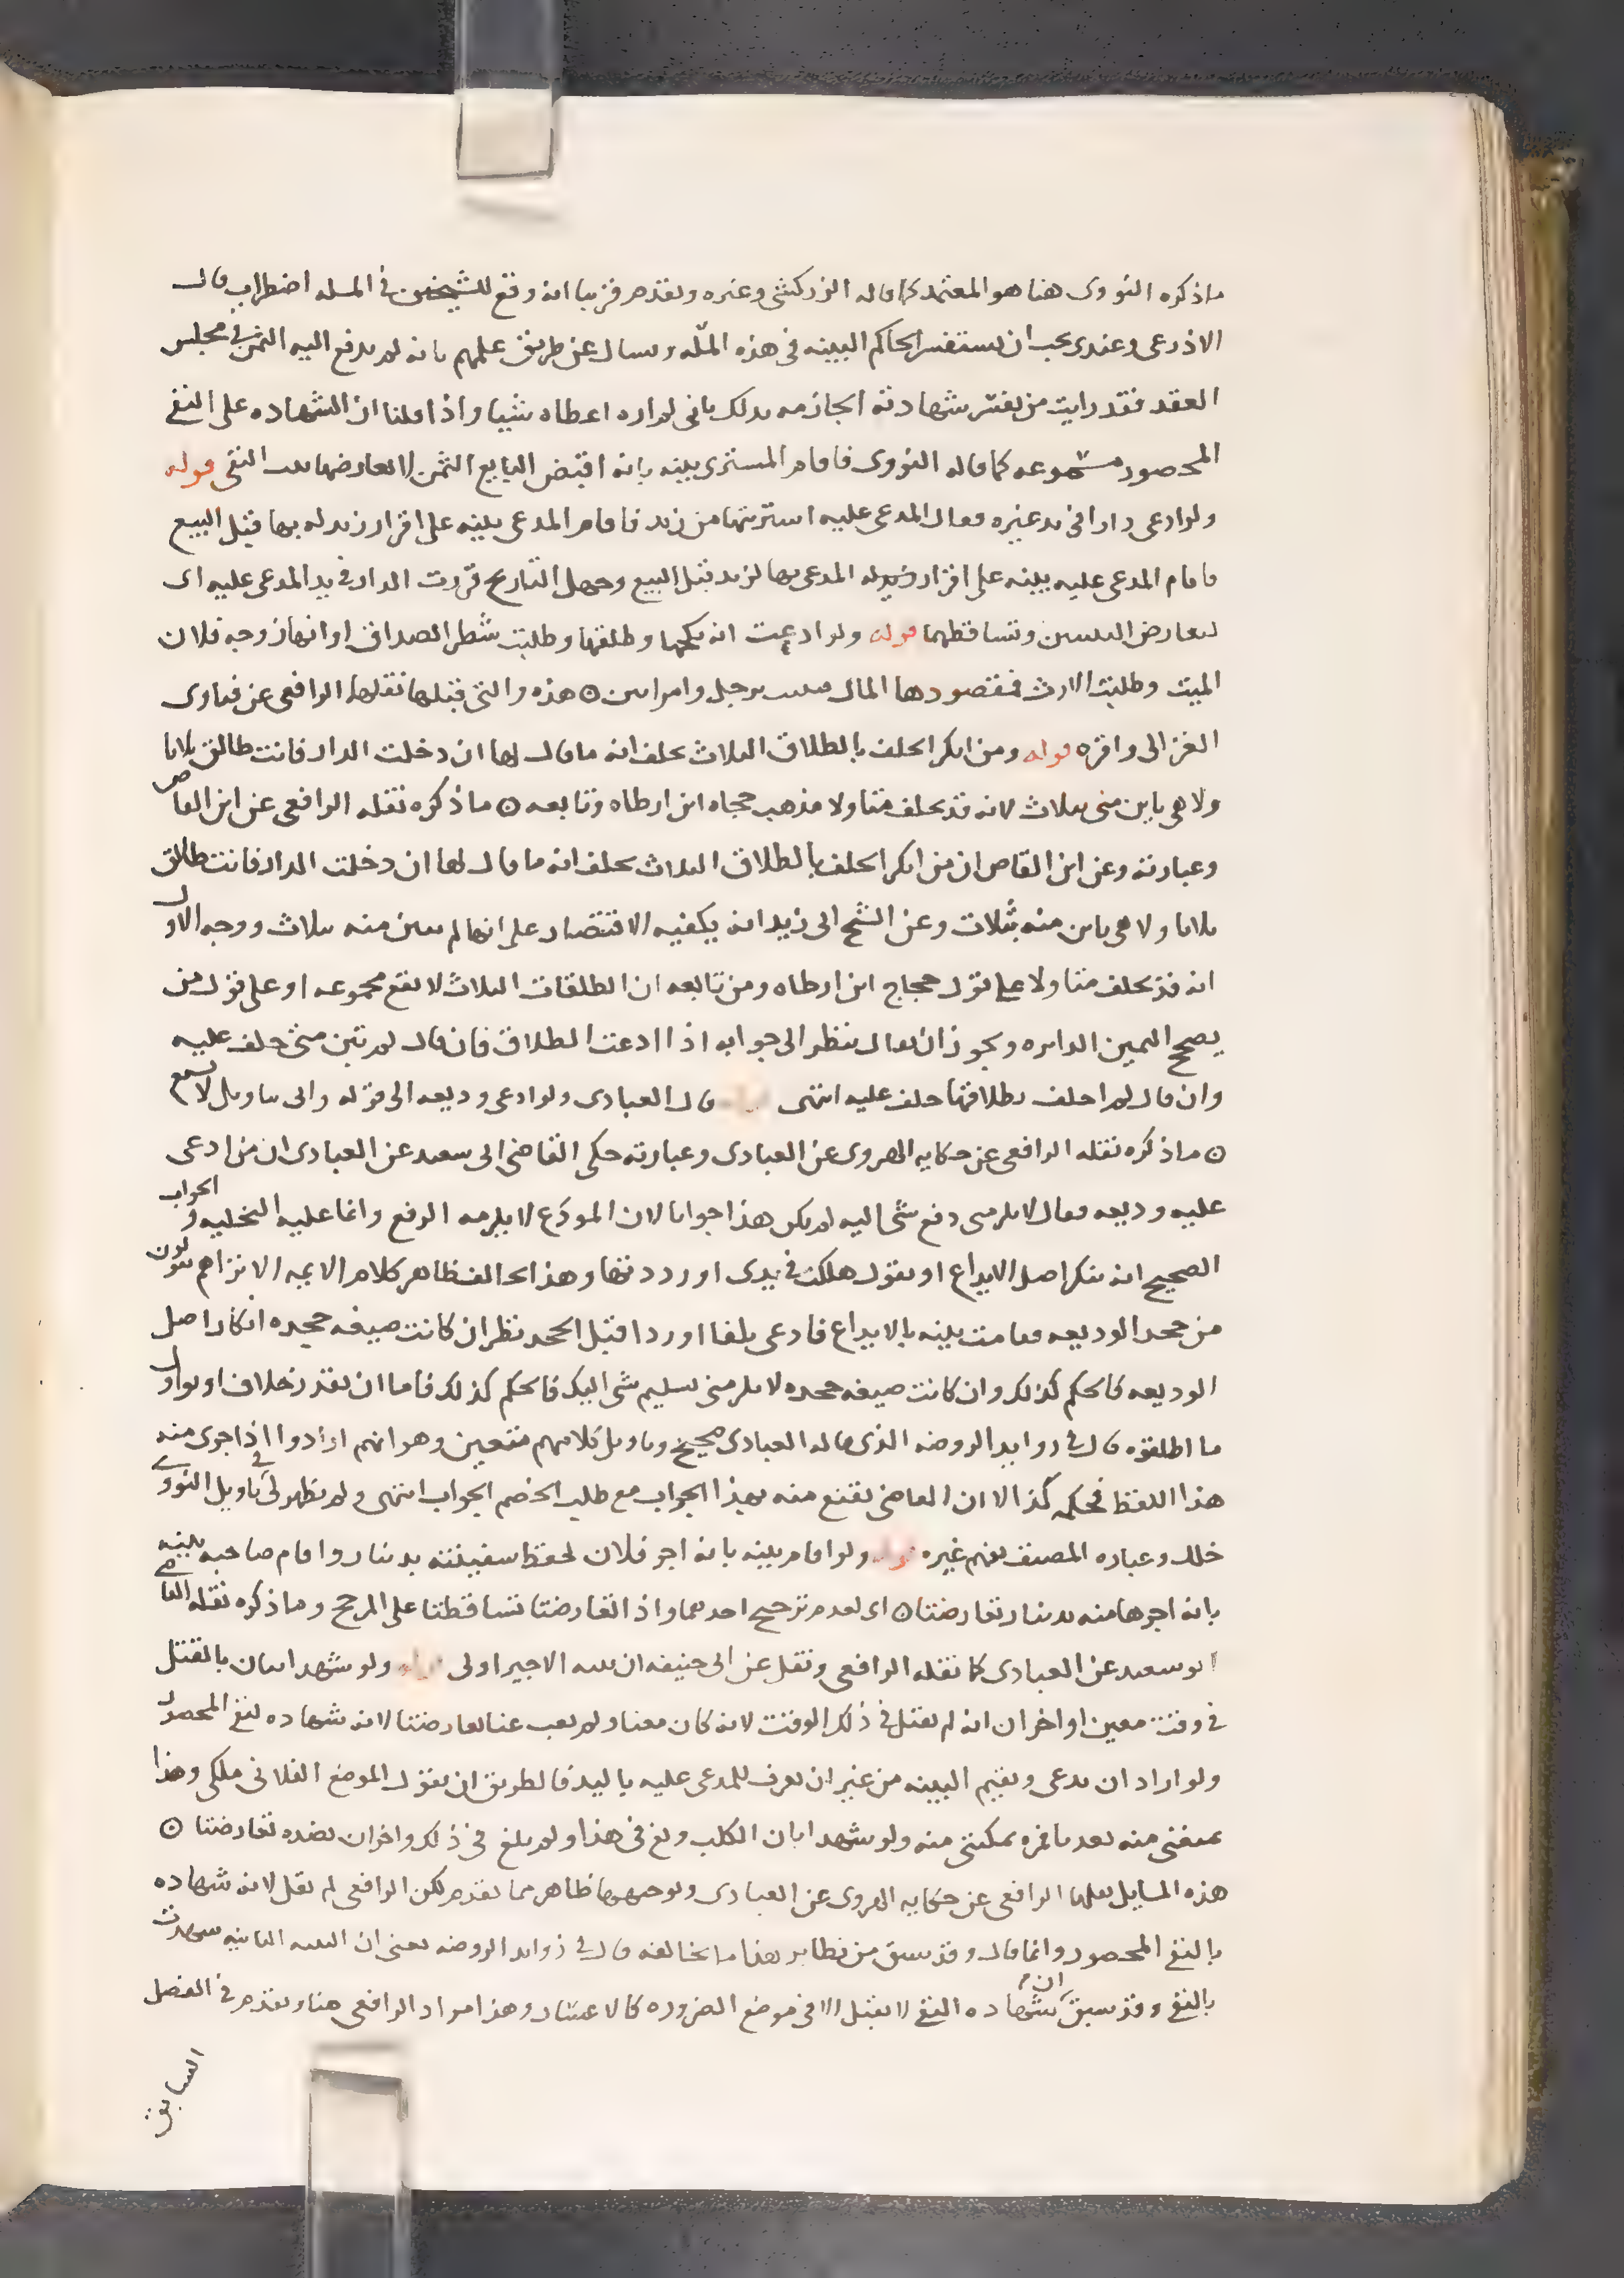 ما ذكره النووى هنا هو المعتمد كما قاله الزركشى وغيره وتقدم قريبا انه وقع للشيخين فى المسله اضطراب قال
الاذرعى وعندى يجب ان يستفسر الحاكم البينه فى هذه المسله ويسال عن طريق علمهم بانه لم يدفع اليه الثمن فى مجلس
العقد فقد رايت من يفسر شهادته الجازمه بذلك بانى لم اره اعطاه شييا واذا قلنا ان الشهاده على النفى
المحصور مسموعه كما قاله النووى فاقام المشترى بينه بانه اقبض البايع الثمن لا تعارضها بينه النفى قوله
ولو ادعى دارا فى يد غيره فقال المدعى عليه اشتريتها من زيد فاقام المدعى بينه على اقرار زيد له بها قبل البيع
فاقام المدعى عليه بينه على اقرار المدعى بها لزيد قبل البيع وجهل التاريخ قررت الدار فى يد المدعى عليه اى
لتعارض البينتين وتساقطهما قوله ولو ادعت انه نكحها وطلقها وطلبت شطر الصداق او انها زوجه فلان
الميت وطلبت الارث فمقصودها المال فيثبت برجل وامراتين ۞ هذه والتى قبلها نقلها الرافعى عن فتاوى
الغزالى واقره قوله ومن انكر الحلف بالطلاق الثلاث يحلف انه ما قال لها ان دخلت الدار فانت طالق ثلاثا
ولا هى باين منى بثلاث لانه قد يحلف متاولا مذهب حجاه ابن ارطاه وتابعه ۞ ما ذكره نقله الرافعى عن ابن القاص
وعبارته وعن ابن القاص ان من انكر الحلف بالطلاق الثلاث يحلف انه ما قال لها ان دخلت الدار فانت طالق
ثلاثا ولا هى باين منه بثلاث وعن الشيخ ابى زيد انه يكفيه الاقتصار على انها لم تبن منه بثلاث ووجه الاول
انه قد يحلف متاولا على قول حجاج ابن ارطاه ومن تابعه ان الطلقات الثلاث لا تقع مجموعه او على قول من
يصحح اليمين الدايره ويجوز ان يقال ينظر الى جوابه اذا ادعت الطلاق فان قال لم تبن منى حلف عليه
وان قال لم احلف بطلاقها حلف عليه انتهى قال العبادى ولو ادعى وديعه الى قوله والى تاويل لا تسمع
۞ ما ذكره نقله الرافعى عن حكايه الهروى عن العبادى وعبارته حكى القاضى ابى سعيد عن العبادى ان من ادعى
عليه وديعه فقال لا يلزمنى دفع شى اليه لم يكن هذا جوابا لان المودَع لا يلزمه الدفع وانما عليه التخليه والجواب
الصحيح انه ينكر اصل الايداع او يقول هلكت فى يدى او رددتها وهذا يخالف ظاهر كلام الايمه الا تراهم يقولون
من جحد الوديعه فقامت بينه بالايداع فادعى تلفا او ردا قبل الجحد نظر ان كانت صيغه جحده انكار اصل
الوديعه فالحكم كذلك وان كانت صيغه جحده لا يلزمنى تسليم شى اليك فالحكم كذلك فاما ان يقدر خلاف او ياول
ما اطلقوه قال فى زوايد الروضه الذى قاله العبادى صحيح وتاويل كلامهم متعين وهو انهم ارادوا اذا جرى منه
هذا اللفظ فحكمه كذا الا ان القاضى يقنع منه بهذا الجواب مع طلب الخصم الجواب انتهى ولم يظهر لى فى تاويل النووى
خلل وعباره المصنف تفهم غيره قوله ولو اقام بينه بانه اجر فلان لحفظ سفينته بدينار واقام صاحبه بينه
بانه اجرها منه بدينار تعارضتا ۞ اى لعدم ترجيح احدهما واذا تعارضتا تساقطتا على المرجح وما ذكره نقله القاضى
ابو سعيد عن العبادى كما نقله الرافعى ونقل عن ابى حنيفه ان بينه الاجير اولى قوله ولو شهد اثنان بالقتل
فى وقت معين واخران انه لم يقتل فى ذلك الوقت لانه كان معنا ولم يغب عنا تعارضتا لانه شهاده بنفى المحصور
ولو اراد ان يدعى ويقيم البينه من غير ان يعرف للمدعى عليه باليد فالطريق ان يقول الموضع الفلانى ملكى وهذا
يمنعنى منه تعديا فمره يمكننى منه ولو شهد ابان الكلب ولغ فى هذا ولم يلغ فى ذلك واخران بضده تعارضتا ۞
هذه المسايل نقلها الرافعى عن حكايه الهروى عن العبادى وتوجيهها ظاهر مما تقدم لكن الرافعى لم يقل لانه شهاده
بالنفى المحصور وانما قال وقد سبق من نظاير هذا ما يخالفه قال فى زوايد الروضه يعنى ان البينه الثانيه شهدت
بالنفى وقد سبق ان شهاده النفى لا تقبل الا فى موضع الضروره كالاعسار وهذا مراد الرافعى هنا وتقدم فى الفصل
السابق